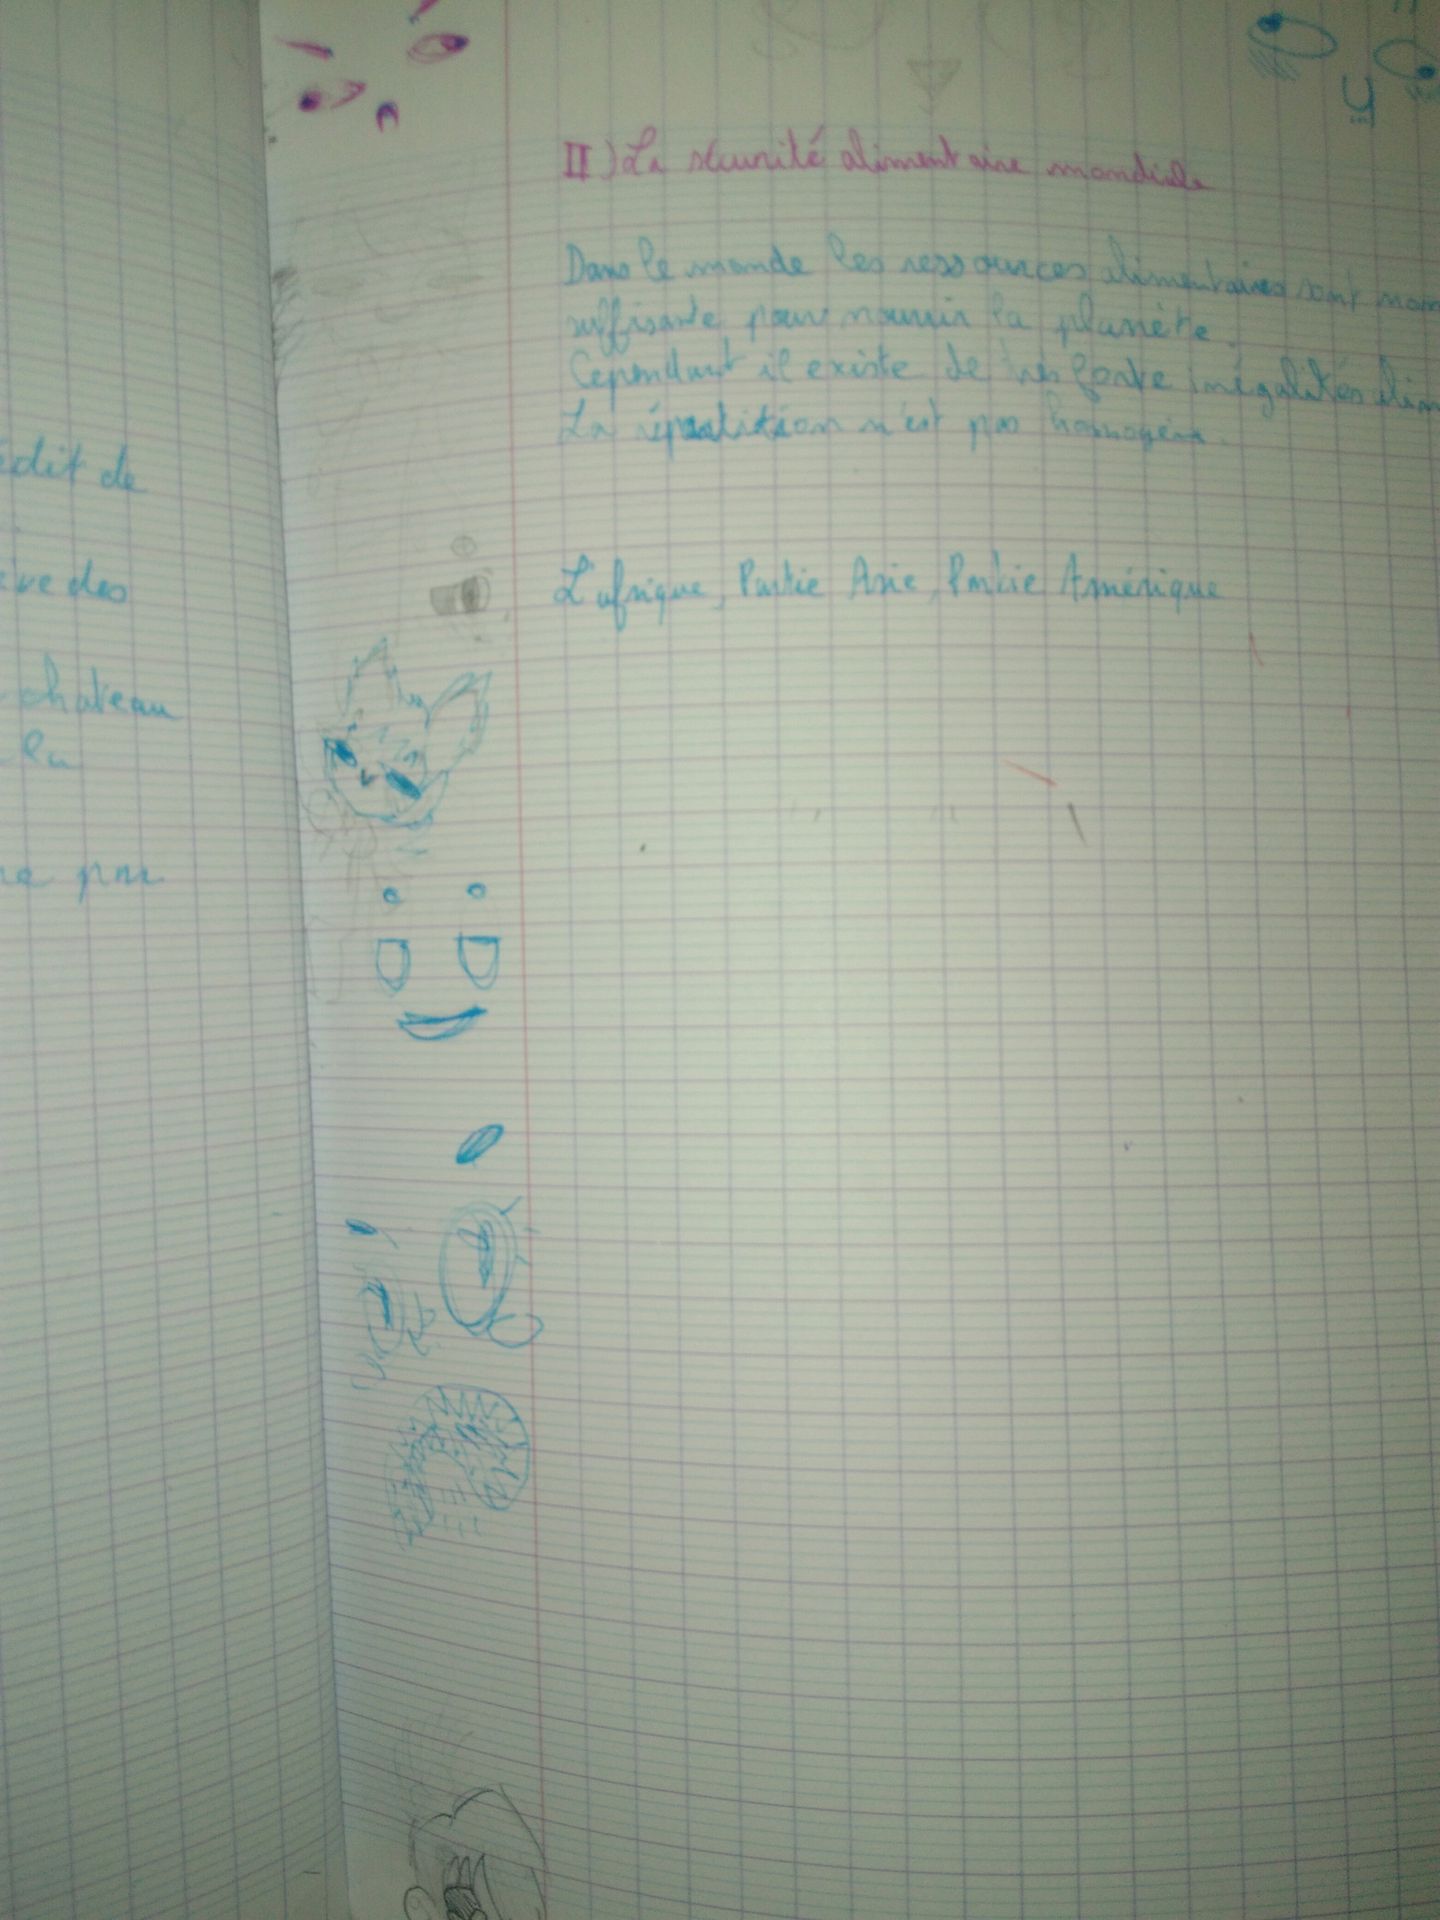 édit de
ve des
chateau
la
par
II) La sécurité alimentaire mondiale
Dans le monde les ressources alimentaires sont
suffisante pour nourrir la planète.
Cependant il existe de très forte inégalités alim
La répartition n'est pas homogène.
L'afrique, Partie Asie, Partie Amérique